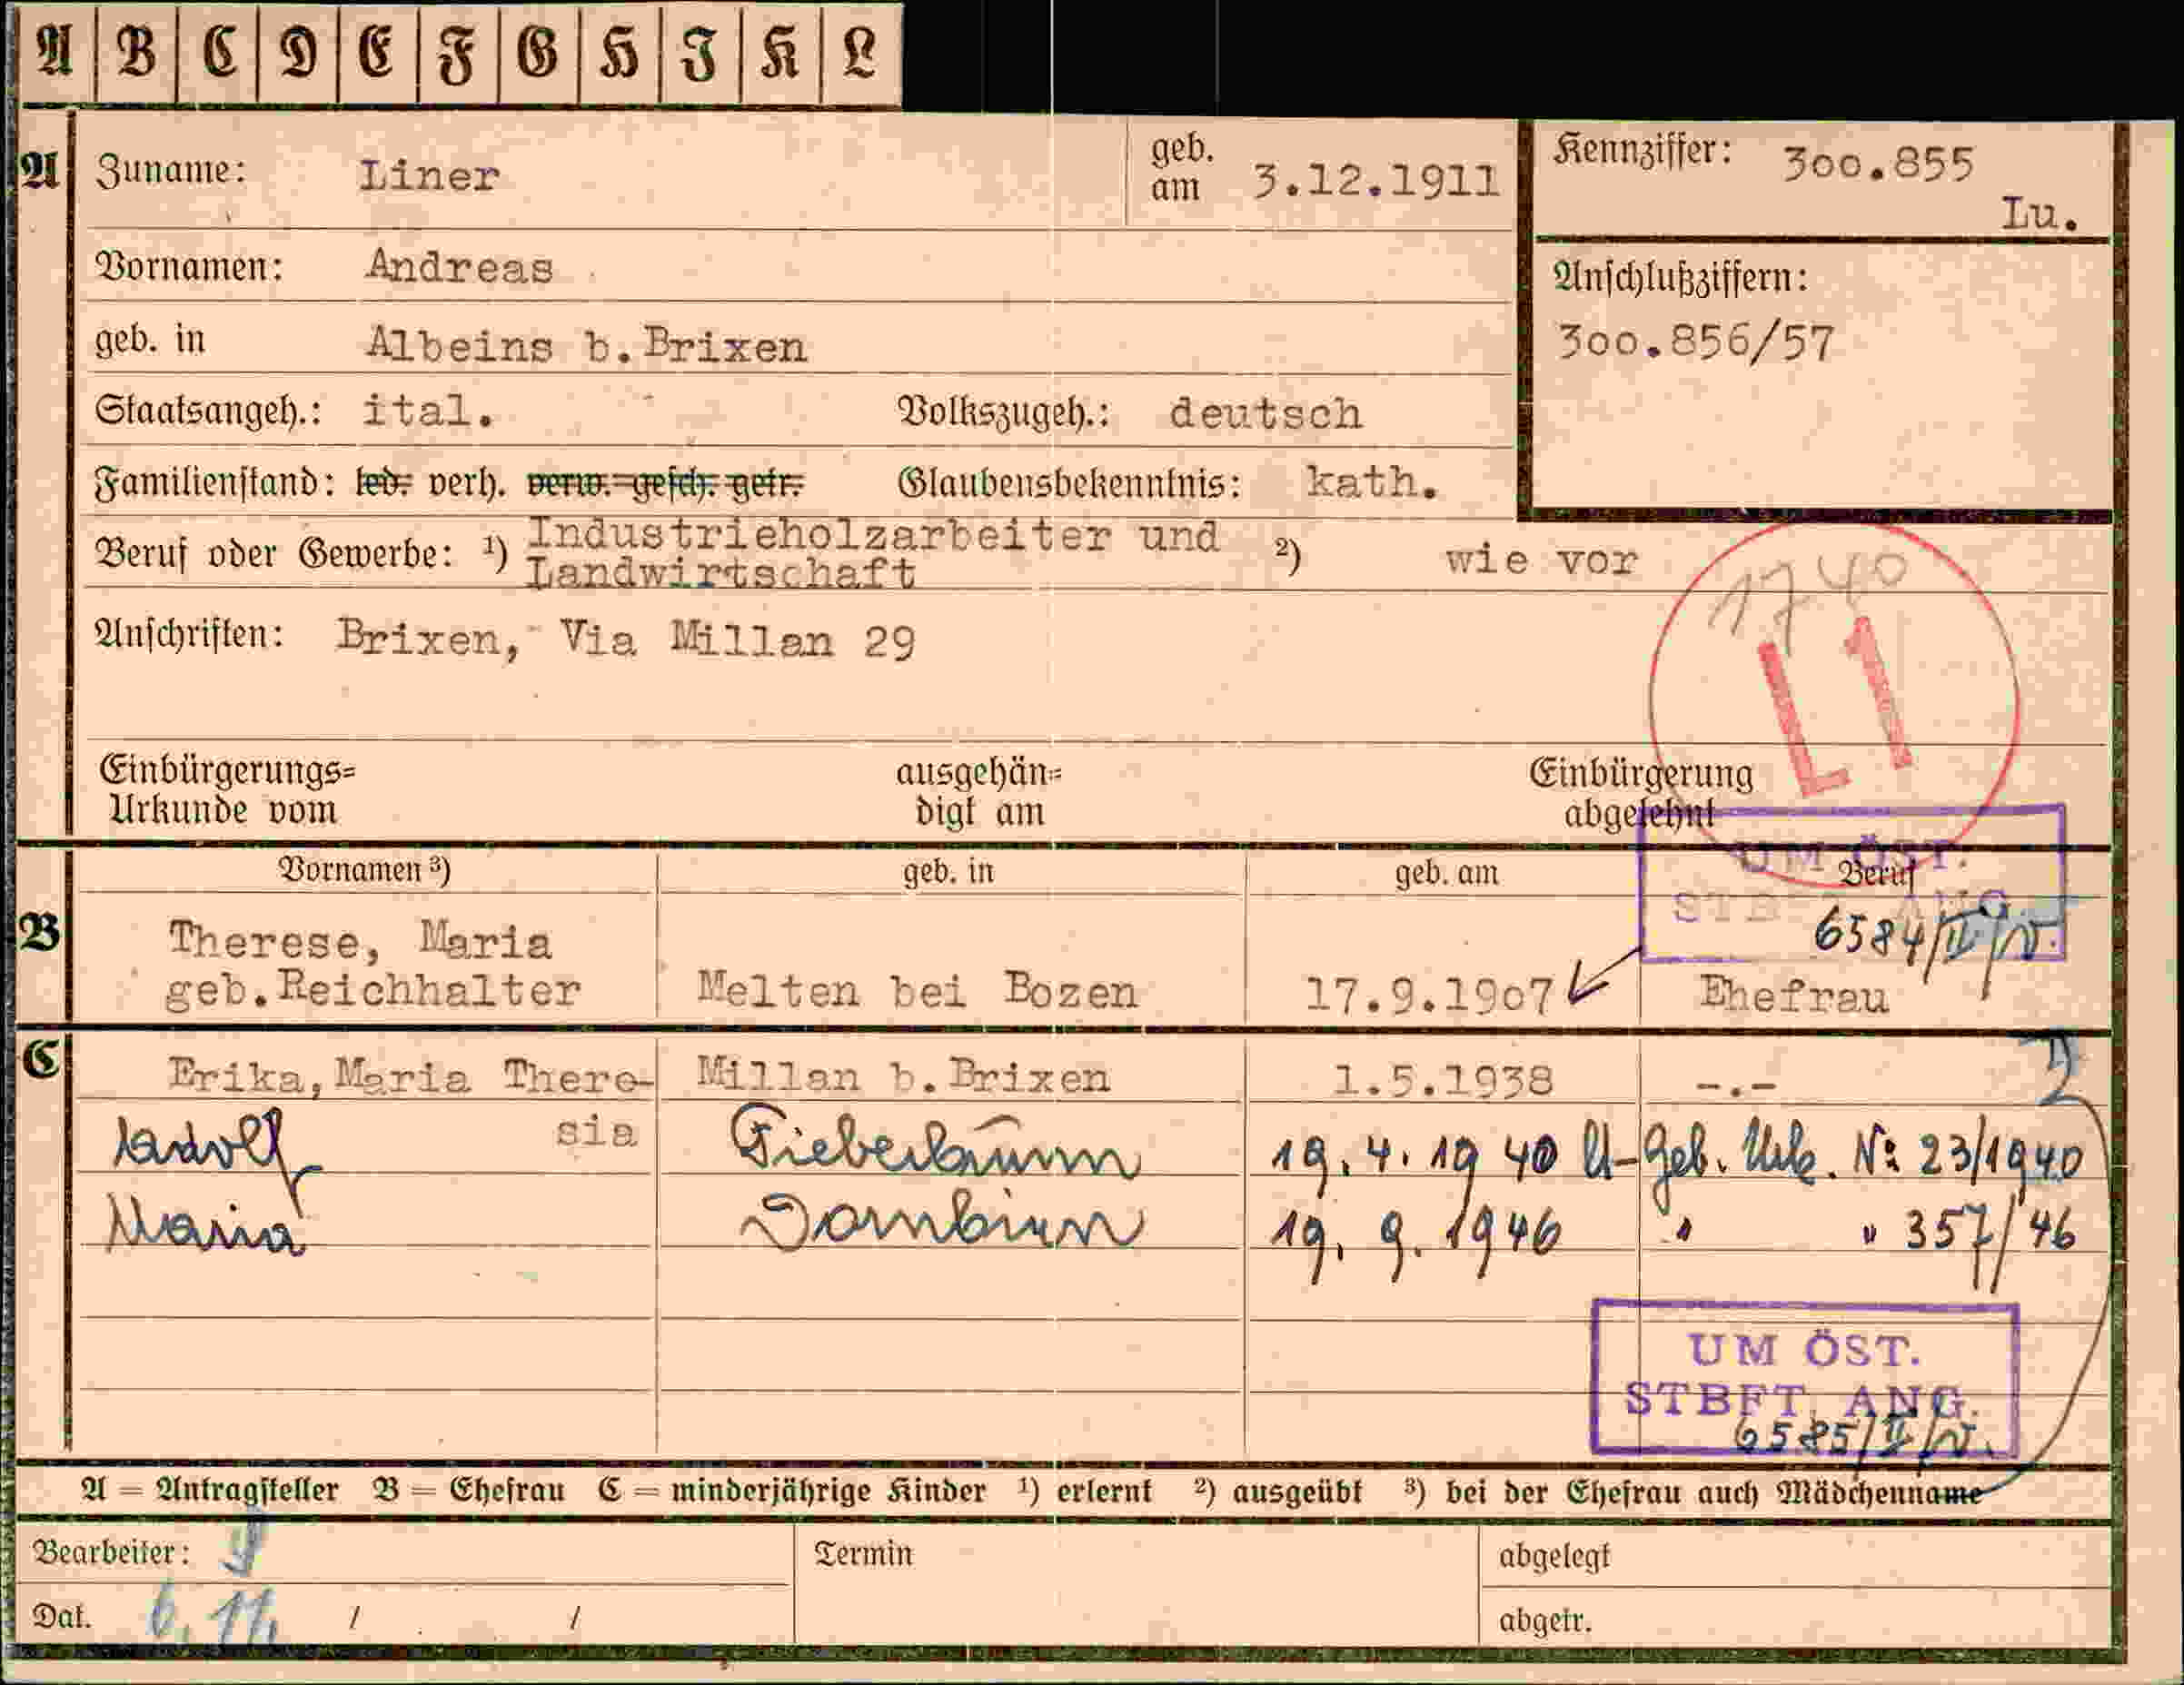 A B C D E F G H J K L
A Zuname: Liner geb. am 3.12.1911 Kennziffer: 300.855
Lu.
Vornamen: Andreas
Anschlußziffern:
geb. in Albeins b.Brixen 300.856/57
Staatsangeh.: ital. Volkszugeh.: deutsch
Familienstand: led. verh. verw. gesch. getr. Glaubensbekenntnis: kath.
Beruf oder Gewerbe: 1) Industrieholzarbeiter und 2) wie vor
Landwirtschaft
1740
Anschriften: Brixen, Via Millan 29
L1
Einbürgerungs= ausgehän= Einbürgerung
Urkunde vom digt am abgelehnt
UM ÖST.
Vornamen 3) geb. in geb. am Beruf
B Therese, Maria 6584/II/
geb.Reichhalter Melten bei Bozen 17.9.1907 Ehefrau
C Erika,Maria There- Millan b.Brixen 1.5.1938 -.-
sia
Adolf Fieberbrunn 19.4.1940 Geb. Urk. No 23/1940
Maria Dornbirn 19.9.1946 " " 357/46
UM ÖST.
STBFT. ANG.
6585/II/
A = Antragsteller B = Ehefrau C = minderjährige Kinder 1) erlernt 2) ausgeübt 3) bei der Ehefrau auch Mädchenname
Bearbeiter: Termin abgelegt
Dat. 6. 11. / / abgetr.